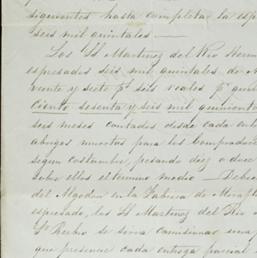 siguientes hasta completar la espre
seis mil quintales.
Los SS Martinez del Rio Herma
espresados seis mil quintales de
veinte y siete p.s seis reales p.r quin
Ciento sesenta y seis mil quinient
seis meses contados desde cada ent
abajos muertos para los Comprador
segun costumbre pesando diez o doce
sobre ellos el termino medio
del Algodon en la Fabrica de Miraf
espresado, los SS Martinez del Rio
S.r Rubio se
que presencie cada entrega parcial